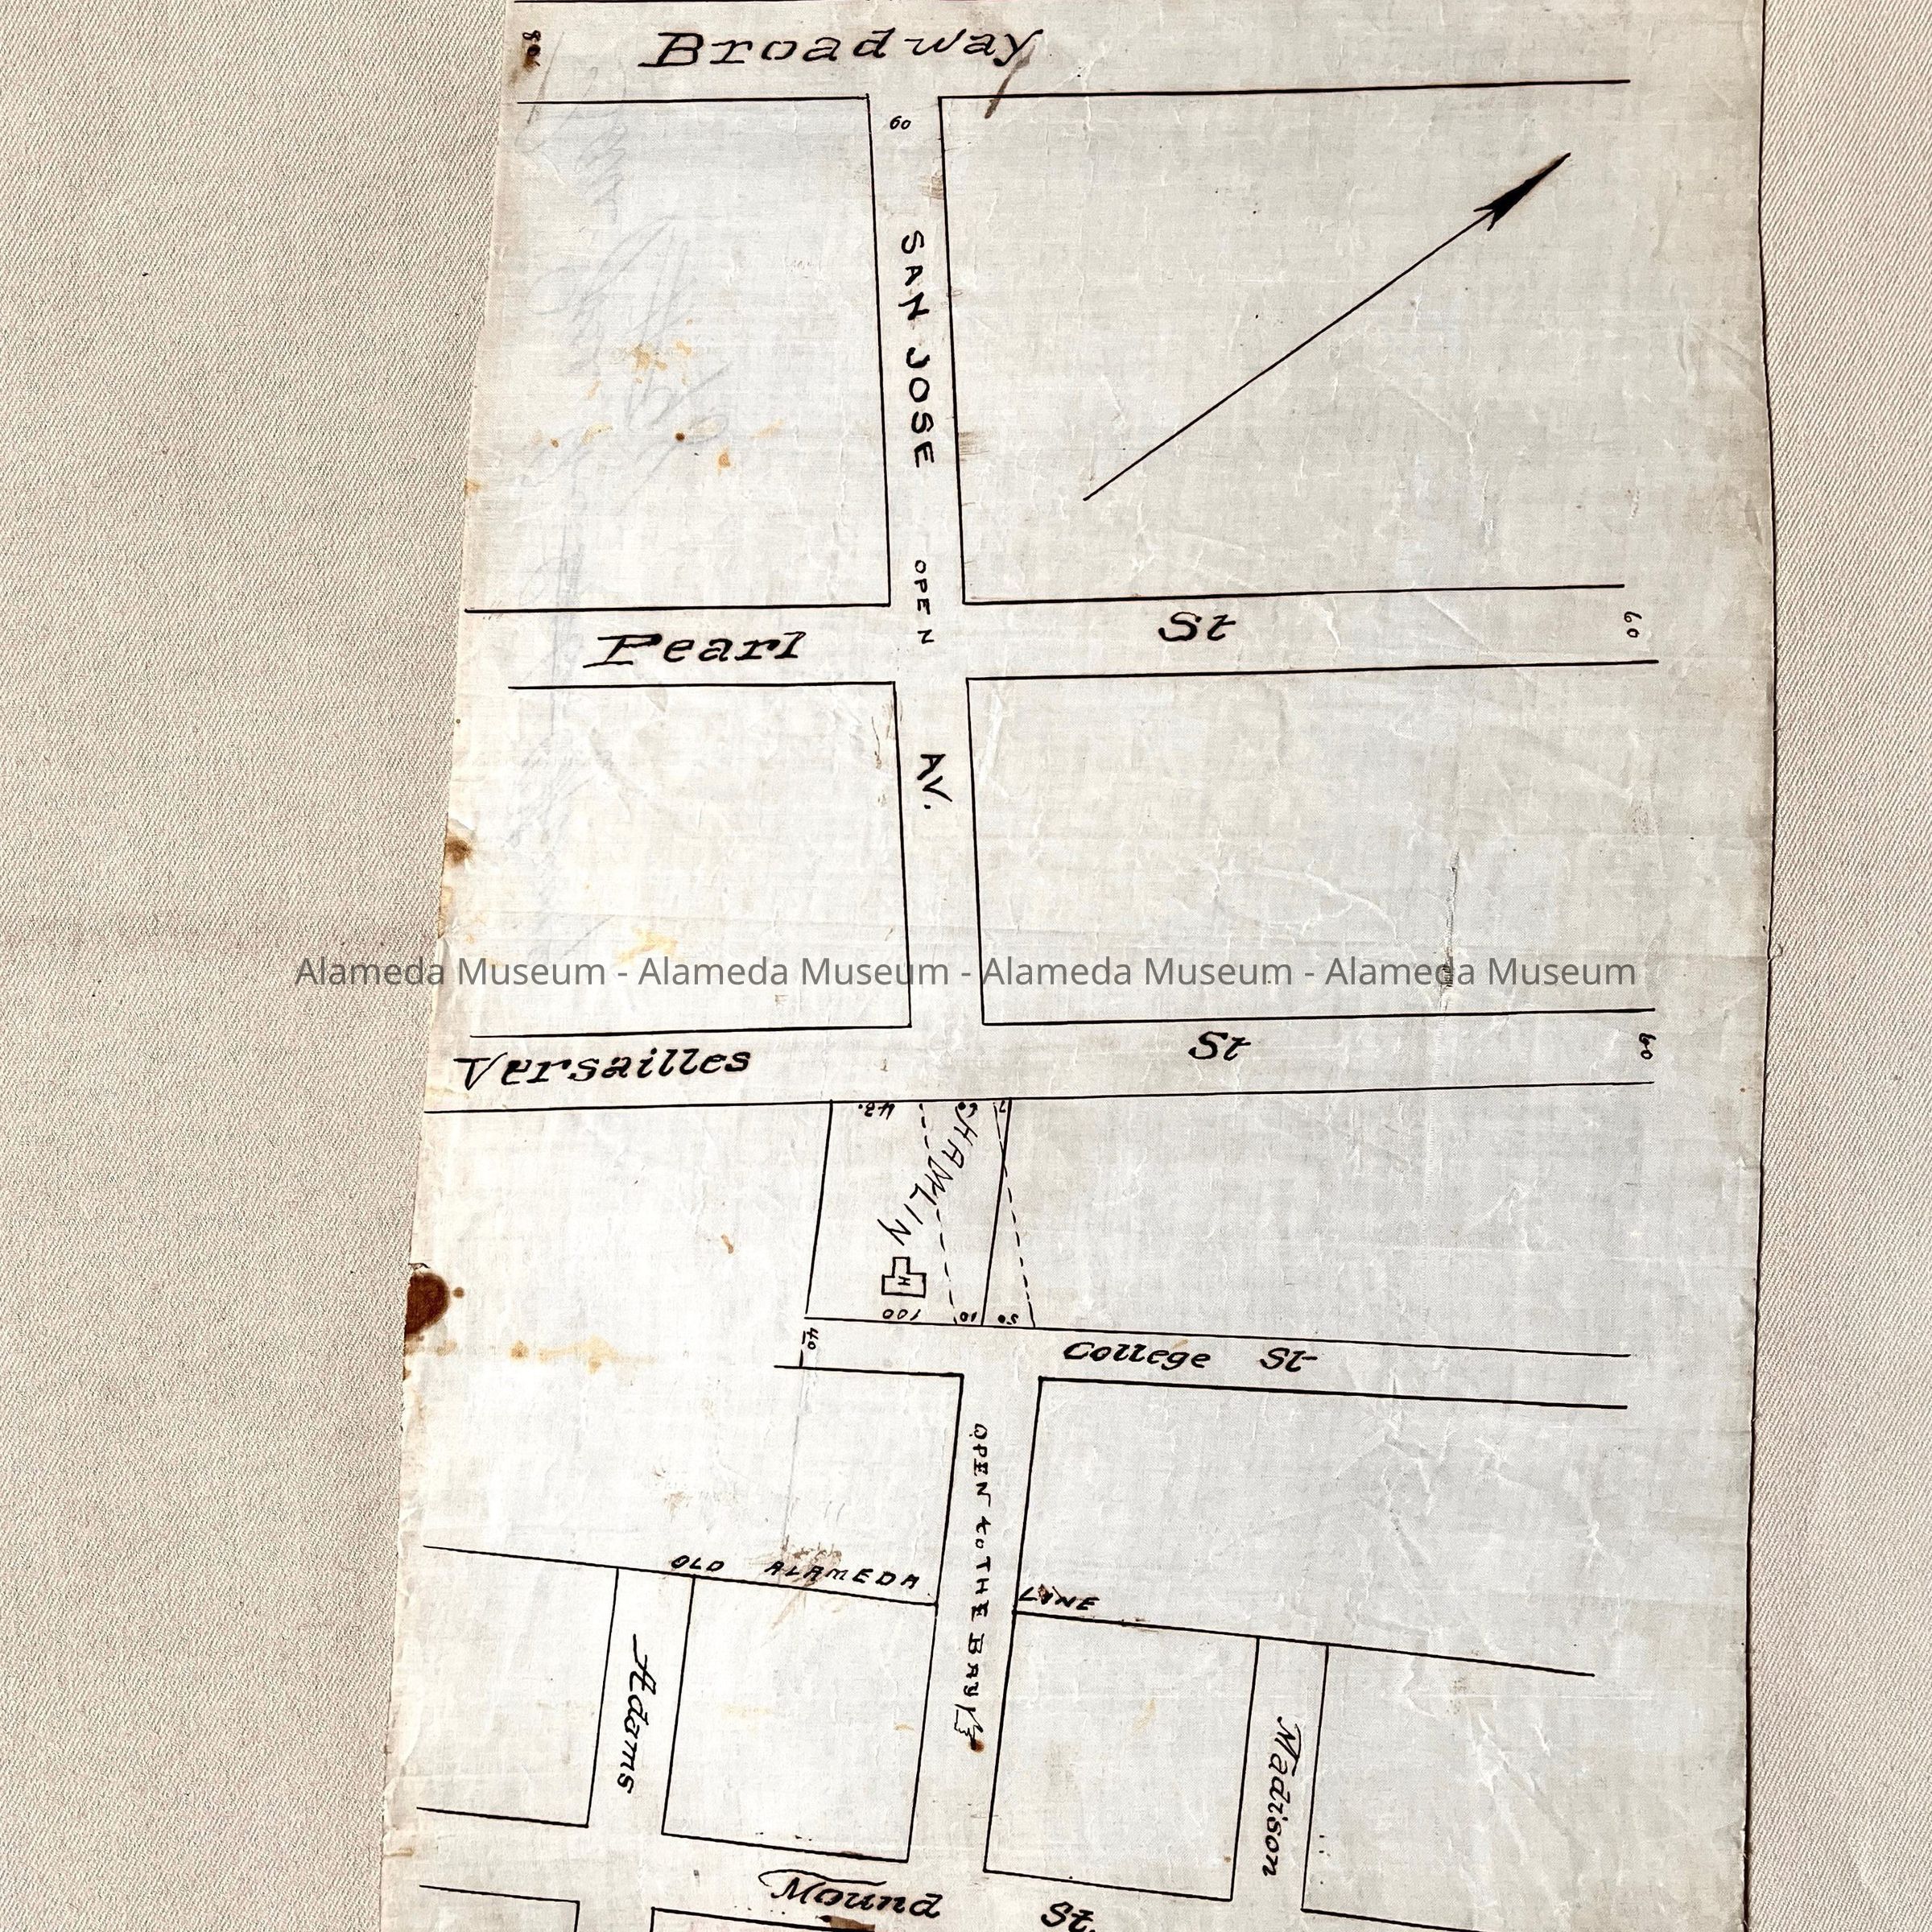 80
Broadway
60
SAN JOSE OPEN AV.
Pearl St
60
Alameda Museum - Alameda Museum - Alameda Museum - Alameda Museum
Versailles St
60
42.
60
7
CHAMLIN
H
100
10
50
40
College St
OPEN to THE BAY
OLD ALAMEDA LINE
Adams
Madison
Mound St.